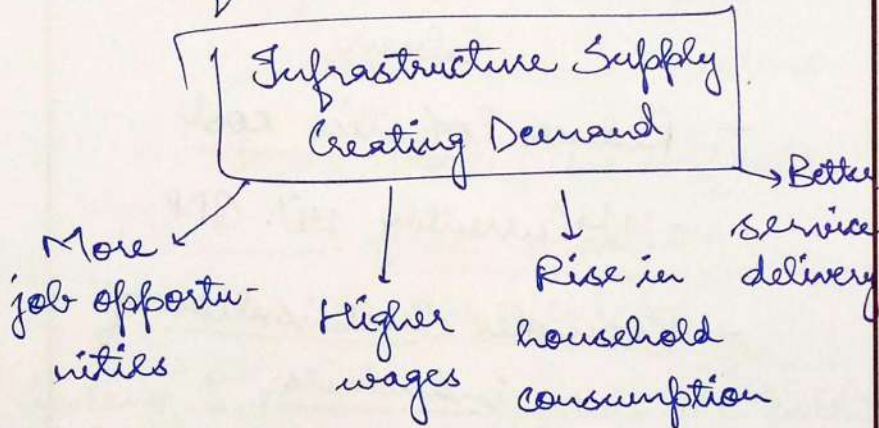 Infrastructure Supply
Creating Demand
More
job opportu-
nities
Higher
wages
Rise in
household
consumption
Better
service
delivery